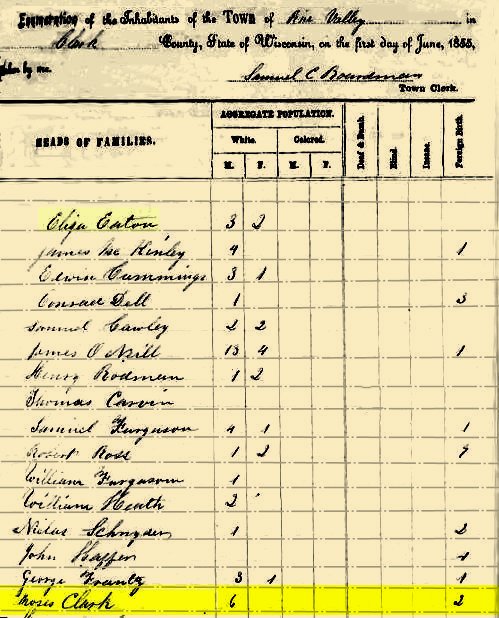 Enumeration of the Inhabitants of the TOWN of Pine Valley in
Clark County, State of Wisconsin, on the first day of June, 1855,
taken by me.
Samuel C Boardman
Town Clerk.
HEADS OF FAMILIES. AGGREGATE POPULATION. Deaf & Dumb. Blind. Insane. Foreign Birth.
White. Colored.
M. F. M. F.
Eliza Eaton 3 2
James Mc Kinley 4 1
Edwin Cummings 3 1
Conrad Dell 1 3
Samuel Cawley 2 2
James O Neill 13 4 1
Henry Rodman 1 2
Thomas Carvin
Samuel Furguson 4 1 1
Robert Ross 1 2 7
William Furguson 1
William Heath 2
Schnyder 1 2
John 1
George Frantz 3 1 1
Moses Clark 6 2